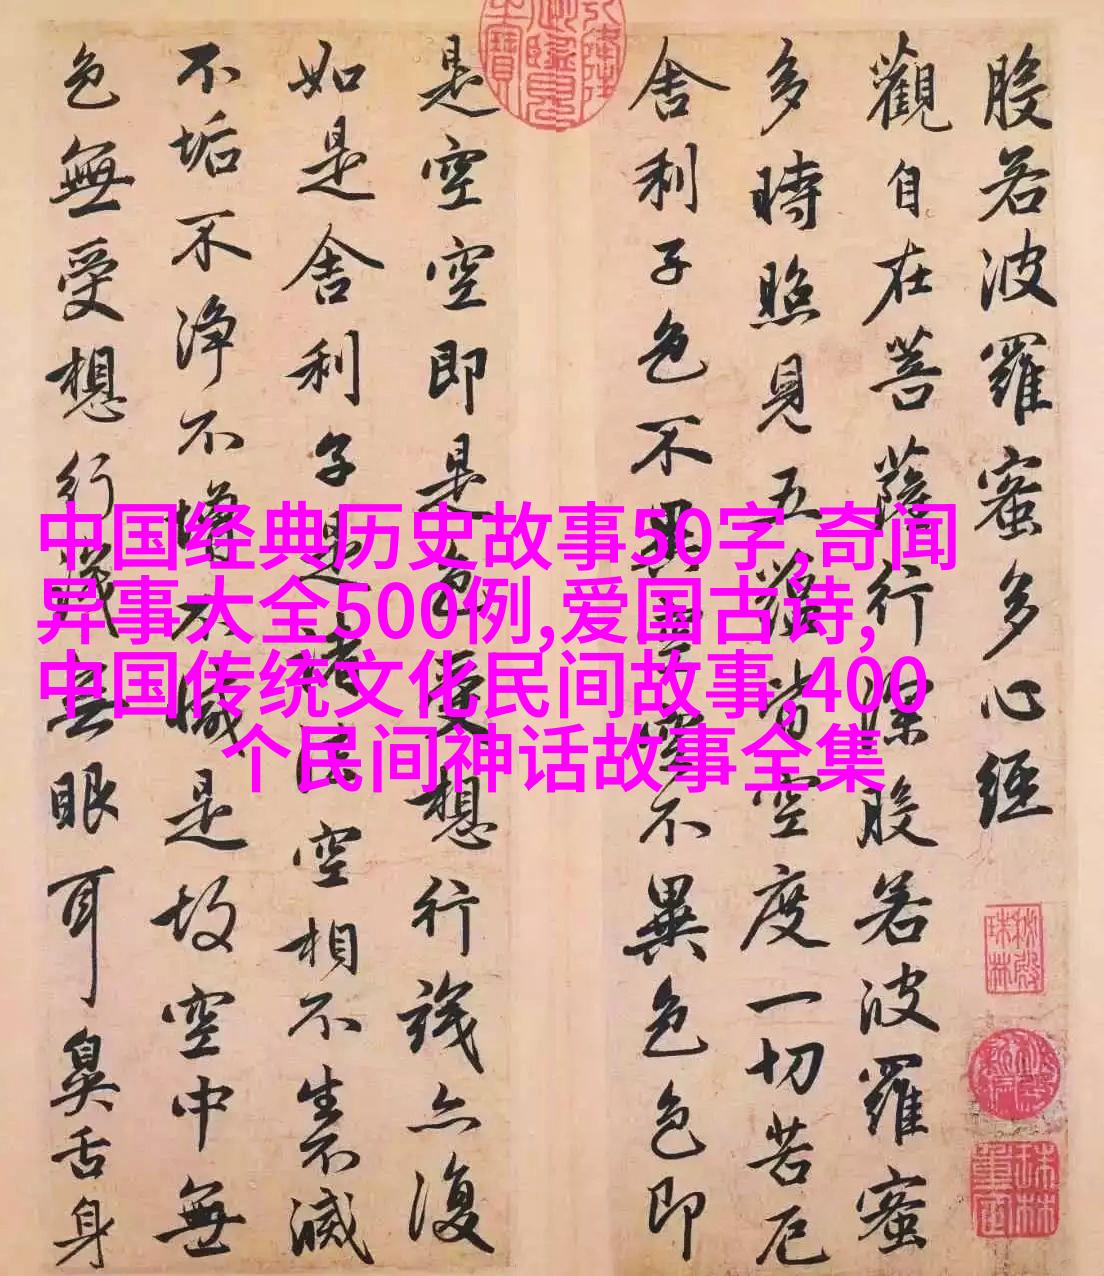 般若波羅蜜多心經
觀自在菩薩行深般若波羅蜜
多時照見五蘊皆空度一切苦厄
舍利子色不異空空不異色色即
是空空即是色受想行識亦復
如是舍利子是諸法空相不生不滅
不垢不淨不增不減是故空中無
色無受想行識無眼耳鼻舌身
秘殿珠林
珠林重定
中国经典历史故事50字,奇闻
异事大全500例,爱国古诗,
中国传统文化民间故事,400
个民间神话故事全集